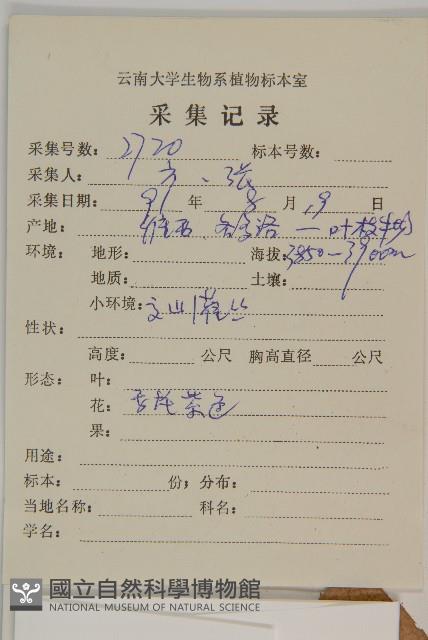 云南大学生物系植物标本室
采集记录
采集号数: 2720 标本号数:
采集人: 方、张
采集日期: 81 年 8 月 19 日
产地: 维西 — 叶枝
环境: 地形: 海拔: 3850—3900m
地质: 土壤:
小环境: 灌丛
性状:
高度: 公尺 胸高直径 公尺
形态: 叶:
花: 紫色
果:
用途:
标本: 份; 分布:
当地名称: 科名:
学名:
國立自然科學博物館
NATIONAL MUSEUM OF NATURAL SCIENCE